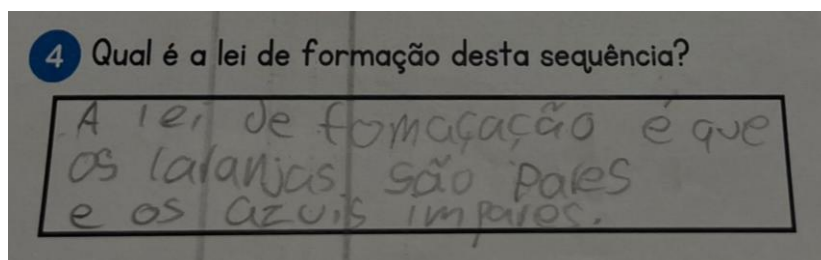 4 Qual é a lei de formação desta sequência?
A lei de fomaçação é que
os laranjas são pares
e os azuis impares.